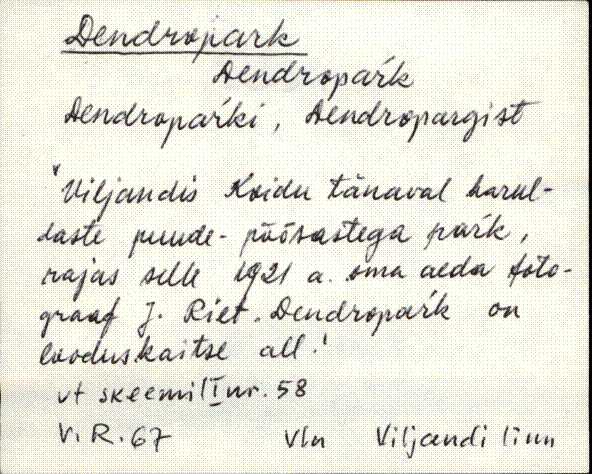 Dendropark
Dendropaŕk
Dendropaŕki, Dendropargist
"Viljandis Koidu tänaval harul-
daste puude-põõsastega paŕk,
rajas selle 1921 a. oma aeda foto-
graaf J. Riet. Dendropaŕk on
looduskaitse all."
vt skeemil I nr. 58
V.R. 67 Vln Viljandi linn